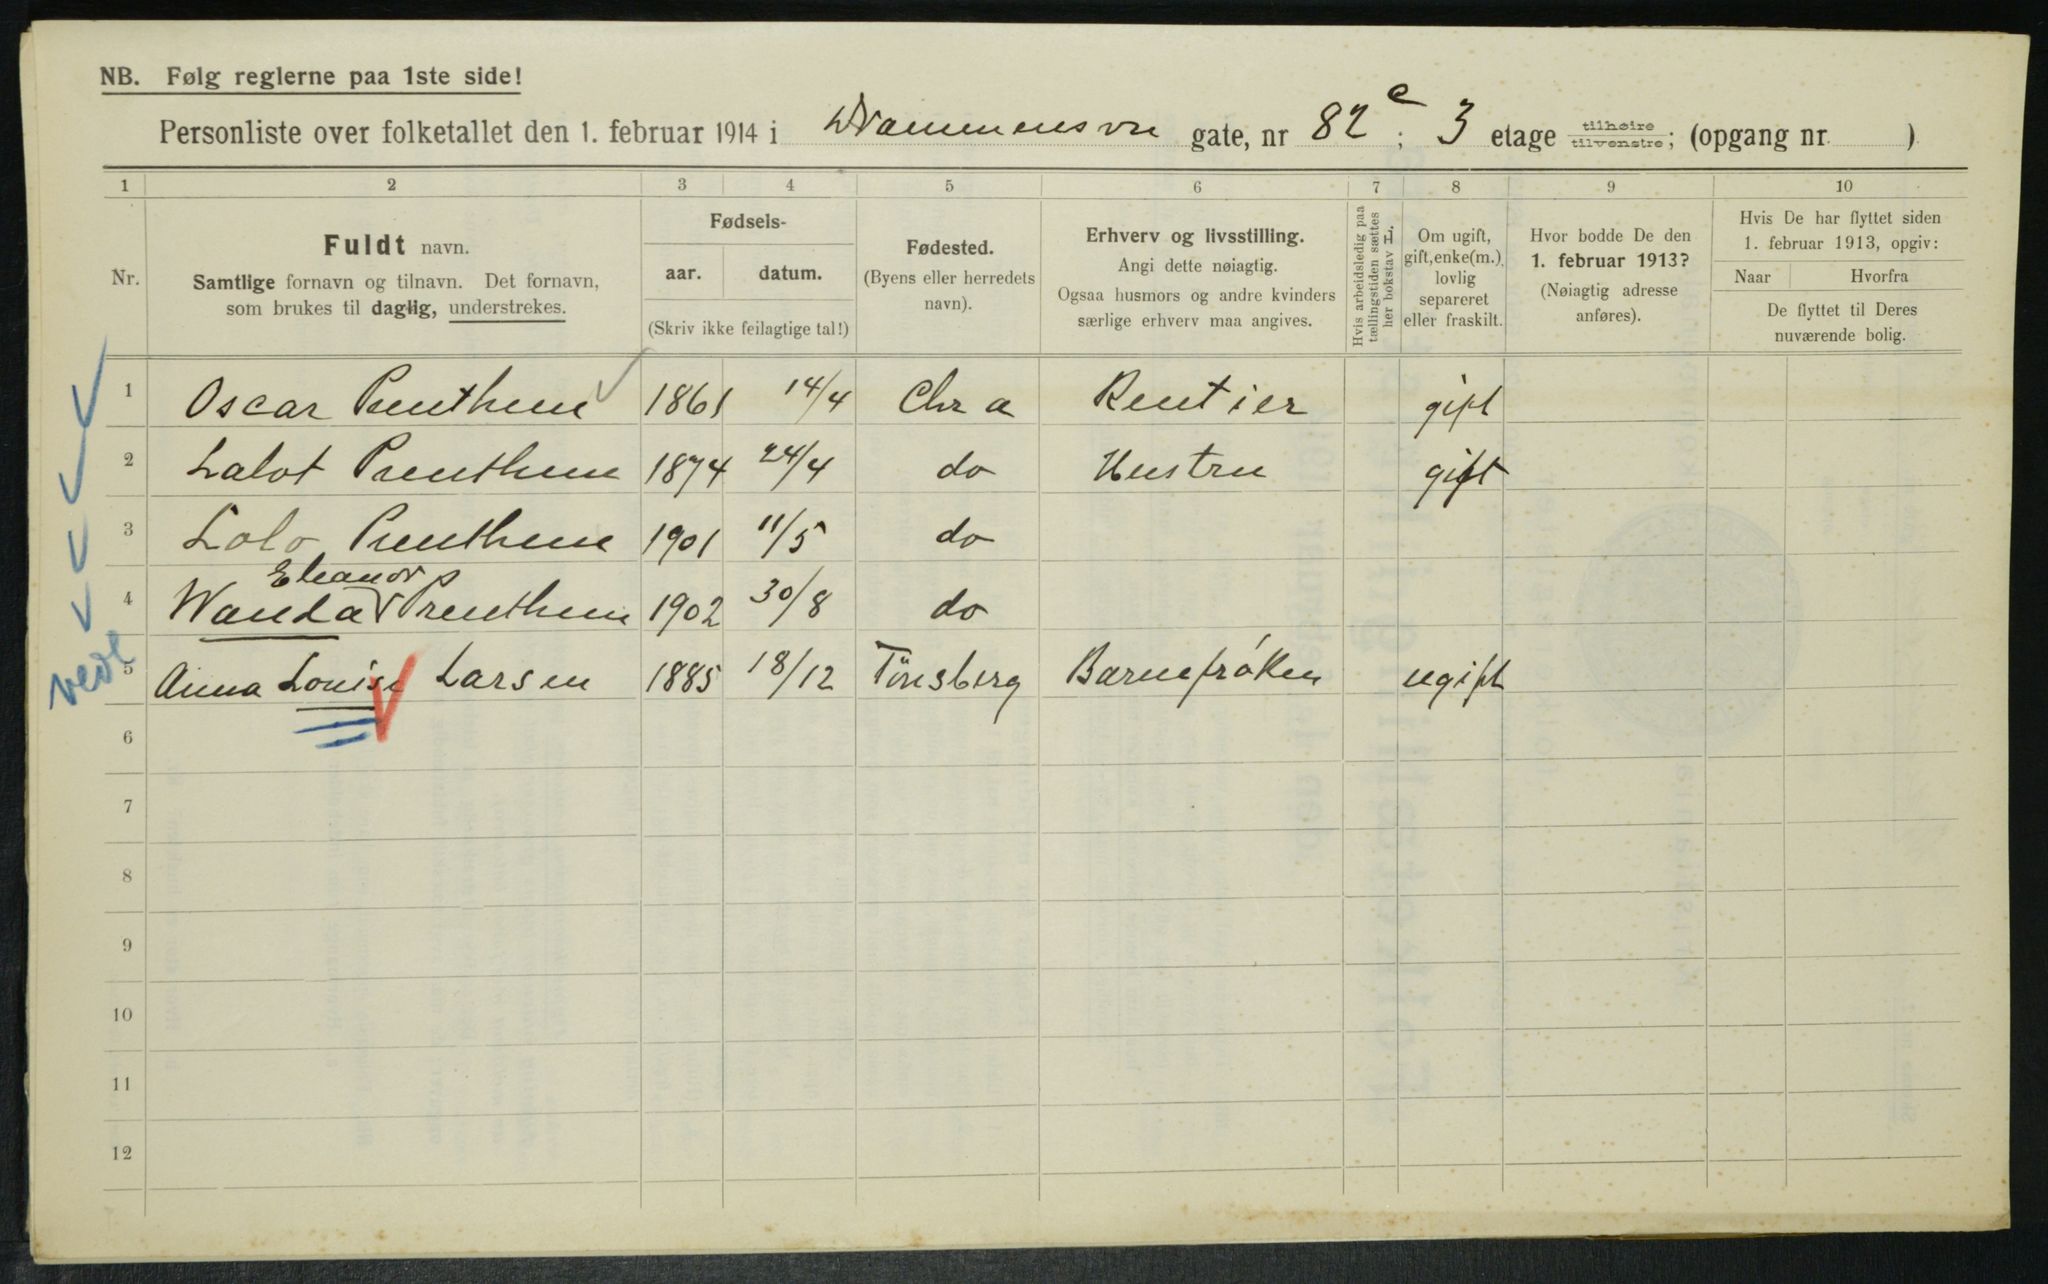 NB. Følg reglerne paa 1ste side!
Personliste over folketallet den 1. februar 1914 i Drammensvn gate, nr 82 c ; 3 etage tilhøire tilvenstre; (opgang nr. )
1 2 3 4 5 6 7 8 9 10
Nr.
Fuldt navn.
Samtlige fornavn og tilnavn. Det fornavn,
som brukes til daglig, understrekes.
Fødsels-
aar. datum.
(Skriv ikke feilagtige tal!)
Fødested.
(Byens eller herredets
navn).
Erhverv og livsstilling.
Angi dette nøiagtig.
Ogsaa husmors og andre kvinders
særlige erhverv maa angives.
Hvis arbeidsledig paa
tællingstiden sættes
her bokstav L.
Om ugift,
gift, enke(m.),
lovlig
separeret
eller fraskilt.
Hvor bodde De den
1. februar 1913?
(Nøiagtig adresse
anføres).
Hvis De har flyttet siden
1. februar 1913, opgiv:
Naar Hvorfra
De flyttet til Deres
nuværende bolig.
1 Oscar 1861 14/4 Chra Rentier gift
2 Lalot 1874 24/4 do Hustru gift
3 Lolo 1901 11/5 do
Eleanor
4 Wanda 1902 30/8 do
5 Anna Louise Larsen 1885 18/12 Tönsberg Barnefröken ugift
6
7
8
9
10
11
12